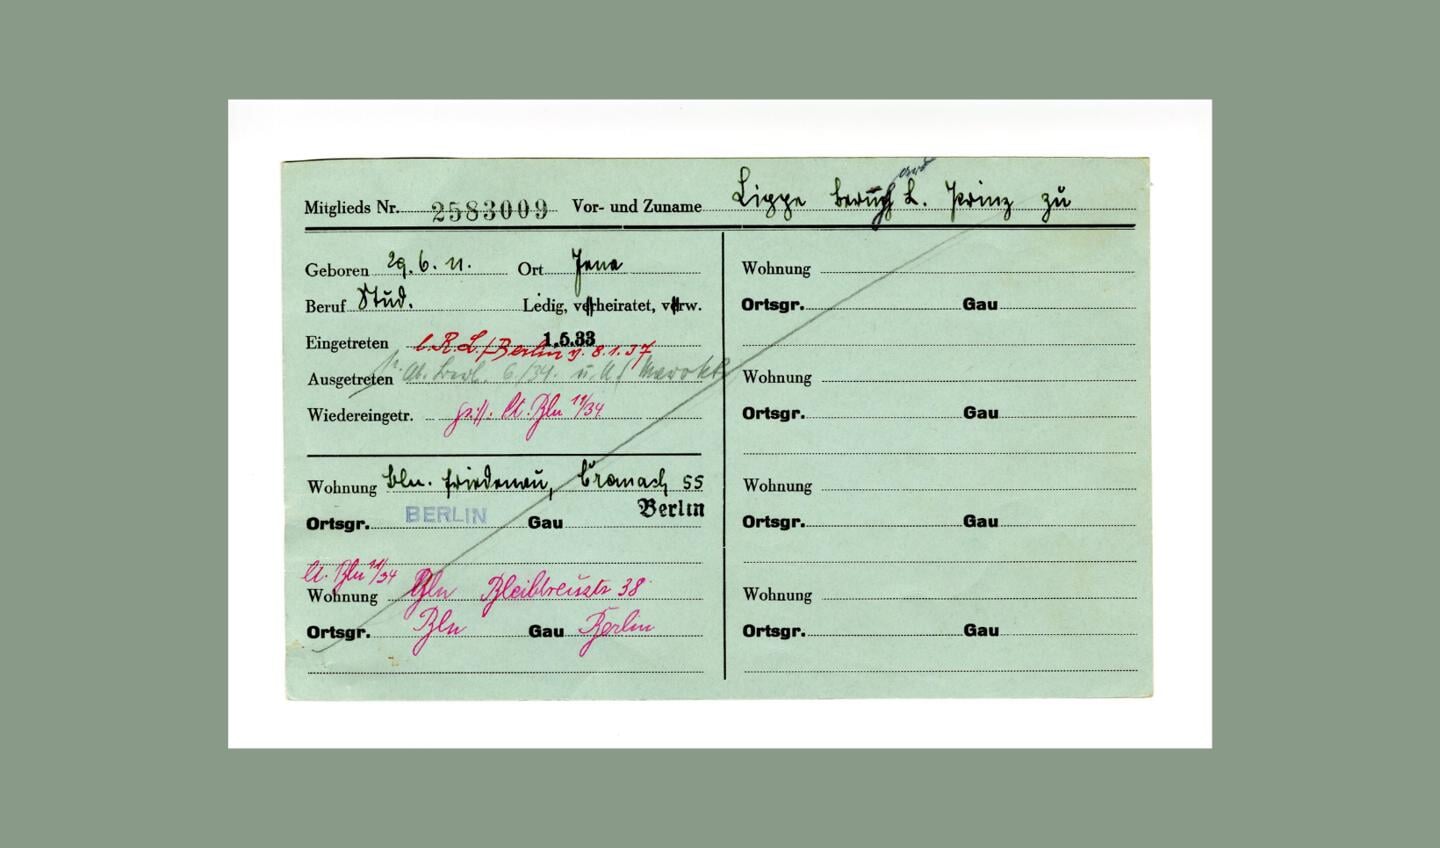 Mitglieds Nr. 2583009 Vor- und Zuname Lippe Bernh. L. Prinz zu
Geboren 29. 6. 11. Ort Jena
Beruf Stud. Ledig, verheiratet, verw.
Eingetreten 1.5.33
l. R.L./Berlin v. 8.1.37
Ausgetreten 6/34. u.
Wiedereingetr. lt. Bln 11/34
Wohnung Bln. Friedenau, Cranach 55
Ortsgr. BERLIN Gau Berlin
lt. Bln 11/34
Wohnung Bln Bleibtreustr 38
Ortsgr. Bln Gau Berlin
Wohnung
Ortsgr. Gau
Wohnung
Ortsgr. Gau
Wohnung
Ortsgr. Gau
Wohnung
Ortsgr. Gau